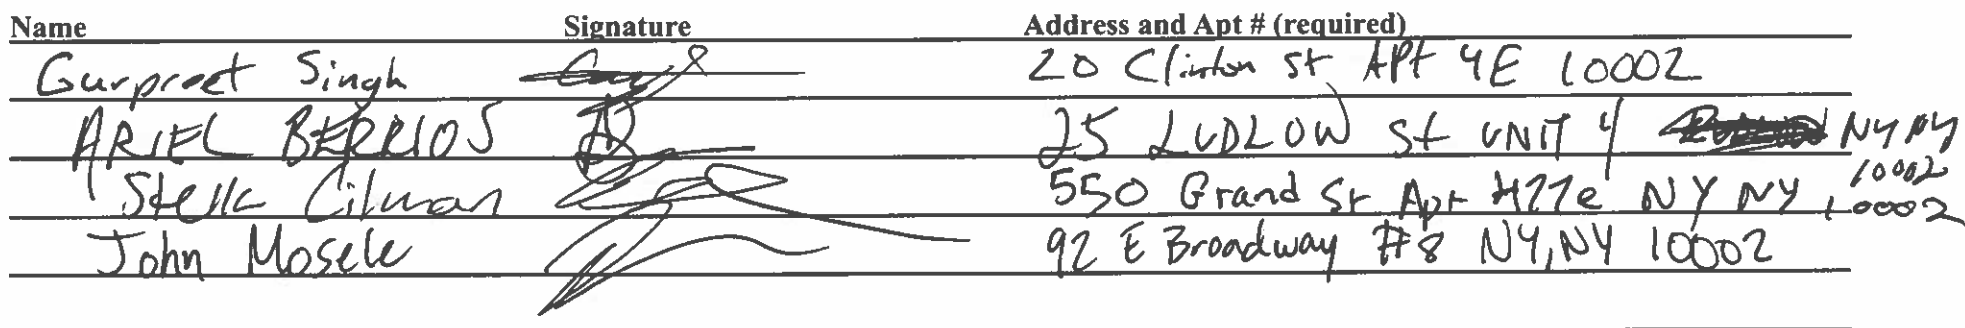 Name Signature Address and Apt # (required)
Gurpreet Singh 20 Clinton St APt 4E 10002
ARIEL BERRIOS 25 LUDLOW St UNIT 4 NY NY
10002
Stella Cilman 550 Grand St Apt NY NY 10002
John Mosele 92 E Broadway #8 NY, NY 10002